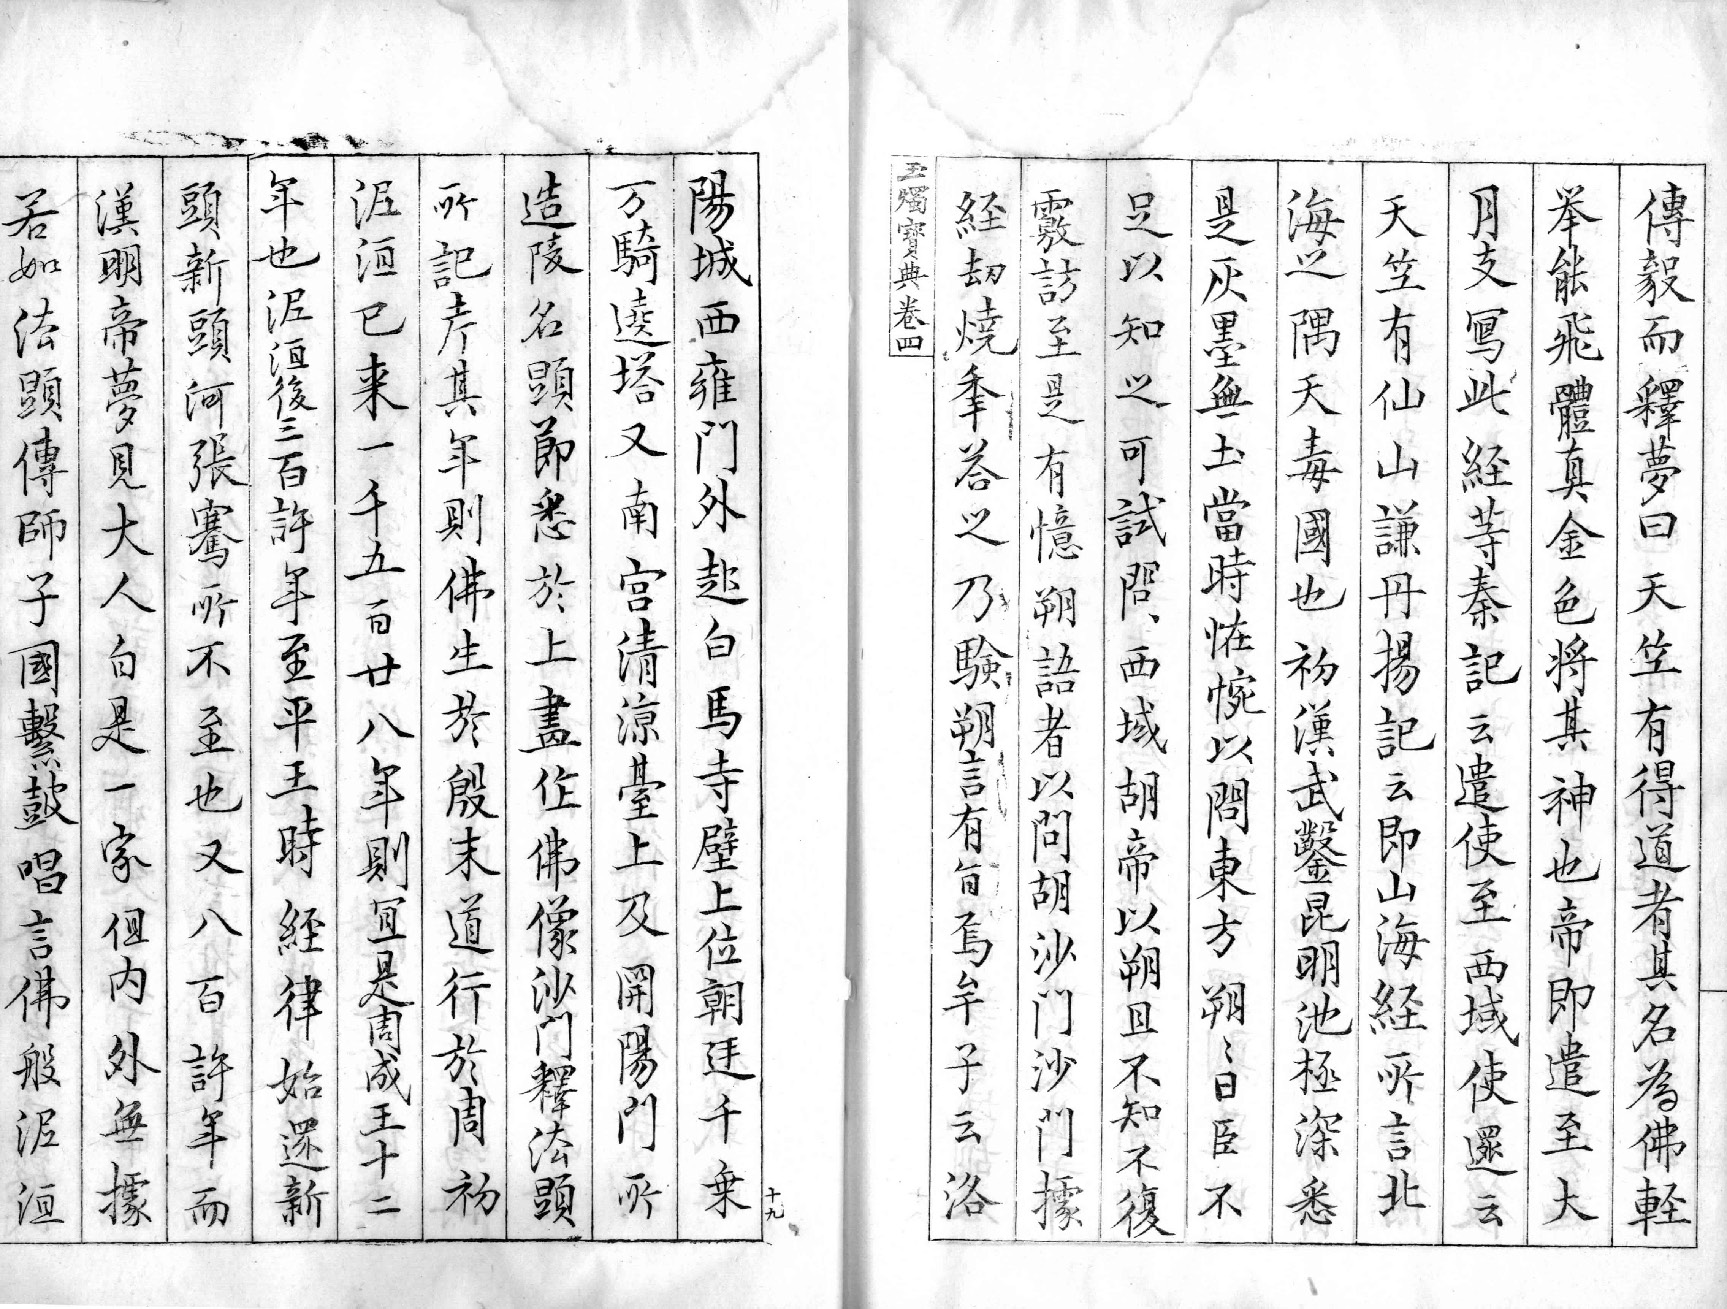 傳毅而釋夢曰天竺有得道者其名為佛軽
举能飛體真金色将其神也帝即遣至大
月支寫此経等秦記云遣使至西域使還云
天竺有仙山謙丹揚記云即山海経所言北
海之隅天毒國也初漢武鑿昆明池極深悉
是灰墨無土當時恠惋以問東方朔〻曰臣不
足以知之可試問、西域胡帝以朔且不知不復
覈訪至是有憶朔語者以問胡沙門沙門據
経劫燒事荅之乃験朔言有旨焉牟子云洛
玉燭寶典卷四
陽城西雍門外起白馬寺壁上位朝廷千乗
万騎遶塔又南宮清涼臺上及開陽門所
造陵名顕節悉於上畫作佛像沙門釋法顕
所記差其年則佛生於殷末道行於周初
泥洹已来一千五百廿八年則冝是周成王十二
年也泥洹後三百許年至平王時経律始還新
頭新頭河張騫所不至也又八百許年而
漢明帝夢見大人自是一家但内外無據
若如法顕傳師子國繫鼓唱言佛般泥洹
十九